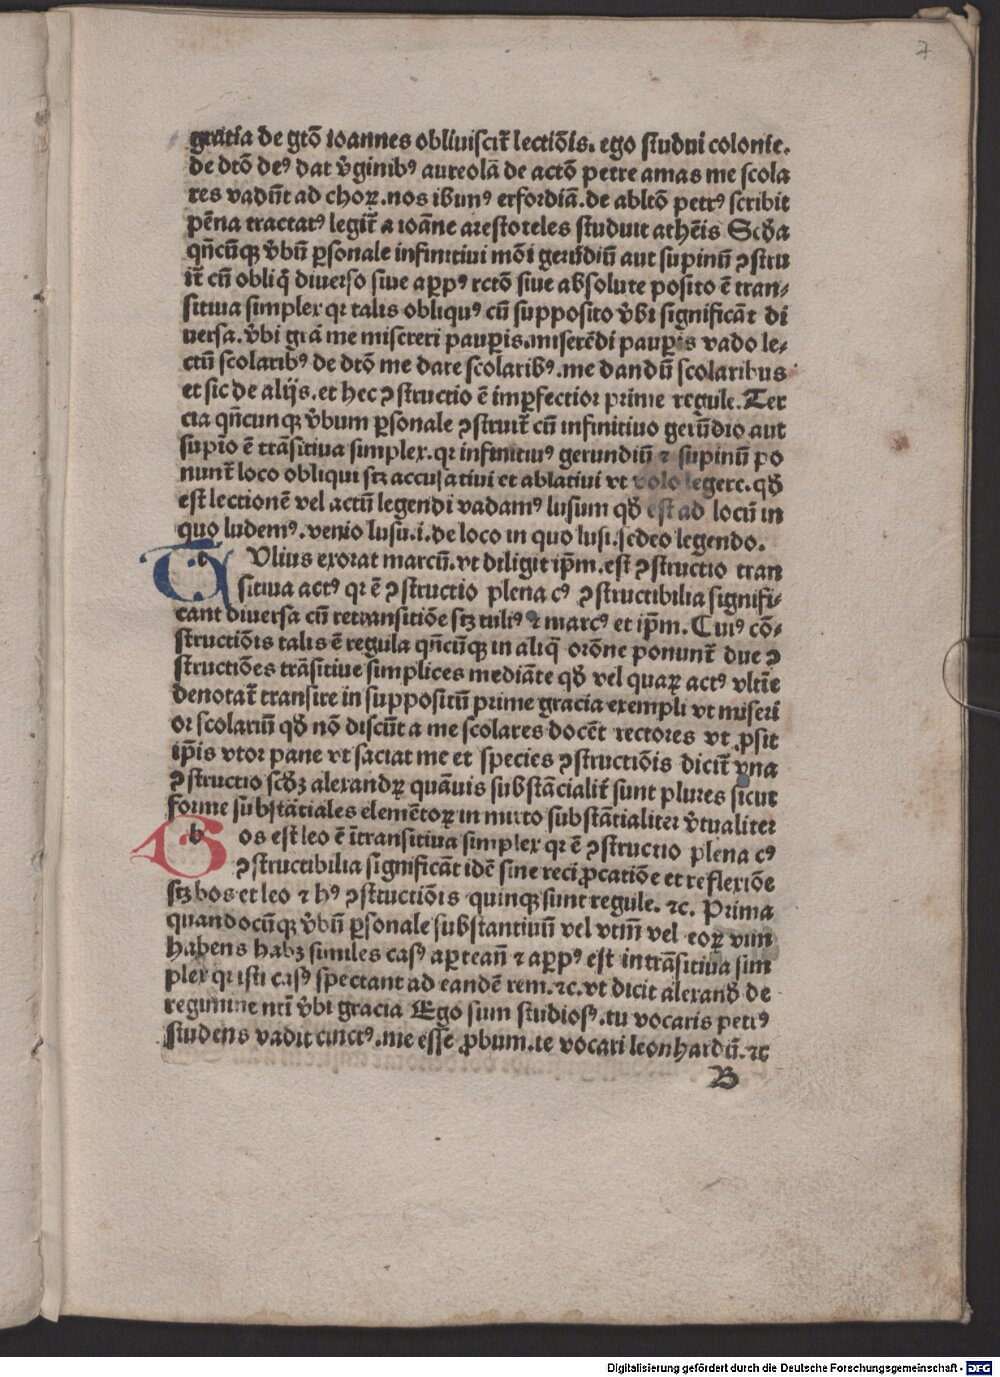 7
gratia de gtō ioannes obliuiscit᷑ lectiōis. ego studui colonie.
de dtō de⁹ dat v̄ginib⁹ aureolā de actō petre amas me scola
res vadūt ad choꝝ. nos ibim⁹ erfordiā. de abltō petr⁹ scribit
pēna tractat⁹ legit᷑ a ioāne arestoteles studuit athēis Scd̄a
qn̄cūqꝫ v̄bū ꝑsonale infinitiui mōi gerūdiū aut supinū ꝯstru
it᷑ cū obliq̄ diuerso siue aꝑp⁹ rctō siue absolute posito ē tran⸗
sitiua simplex qꝛ talis obliqu⁹ cū supposito v̄bi significāt di
uersa. v̄bi grā me misereri pauꝑis. miserēdi pauꝑis vado le⸗
ctū scolarib⁹ de dtō me dare scolarib⁹. me dandū scolaribus
et sic de alijs. et hec ꝯstructio ē imꝑfectior prime regule. Ter
cia qn̄cunqꝫ v̄bum ꝑsonale ꝯstruit᷑ cū infinitiuo gerūdio aut
supīo ē trāsitiua simplex. qꝛ infinitiu⁹ gerundiū ⁊ supinū po
nunt᷑ loco obliqui sꝫ accusatiui et ablatiui vt volo legere. qd̄
est lectionē vel actū legendi vadam⁹ lusum qd̄ est ad locū in
quo ludem⁹. venio lusu. i. de loco in quo lusi. sedeo legendo.
T Ulius exorat marcū. vt diligit ip̄m. est ꝯstructio tran
sitiua act⁹ qꝛ ē ꝯstructio plena c⁹ ꝯstructibilia signifi⸗
cant diuersa cū retransitiōe sꝫ tuli⁹ ⁊ marc⁹ et ip̄m. Cui⁹ cō⸗
structiōis talis ē regula qn̄cūqꝫ in aliq̄ orōne ponunt᷑ due ꝯ
structiōes trāsitiue simplices mediāte qd̄ vel quaꝝ act⁹ vltīe
denotat᷑ transire in suppositū prime gracia exempli vt miseri
or scolariū qd̄ nō discūt a me scolares docēt rectores vt ꝓsit
ip̄is vtor pane vt saciat me et species ꝯstructiōis dicit᷑ vna
ꝯstructio scd̄ꝫ alexandꝝ quāuis substācialit᷑ sunt plures sicut
forme substātiales elemētoꝝ in mixto substātialiter v̄tualiter
B os est leo ē ītransitiua simplex qꝛ ē ꝯstructio plena c⁹
ꝯstructibilia significāt idē sine reciꝓcatiōe et reflexiōe
sꝫ bos et leo ⁊ h⁹ ꝯstructiōis quinqꝫ sunt regule. ⁊c. Prima
quandocūqꝫ v̄bū ꝑsonale substantiuū vel vtm̄ vel eoꝝ vim
habens habꝫ similes cas⁹ aꝑteān ⁊ aꝑp⁹ est intrāsitiua sim
plex qꝛ isti cas⁹ spectant ad eandē rem. ⁊c. vt dicit alexand̄ de
regimine ntī v̄bi gracia Ego sum studios⁹. tu vocaris petr⁹
studens vadit cinct⁹. me esse ꝓbum. te vocari leonhardū. ⁊c
B
Digitalisierung gefördert durch die Deutsche Forschungsgemeinschaft - DFG